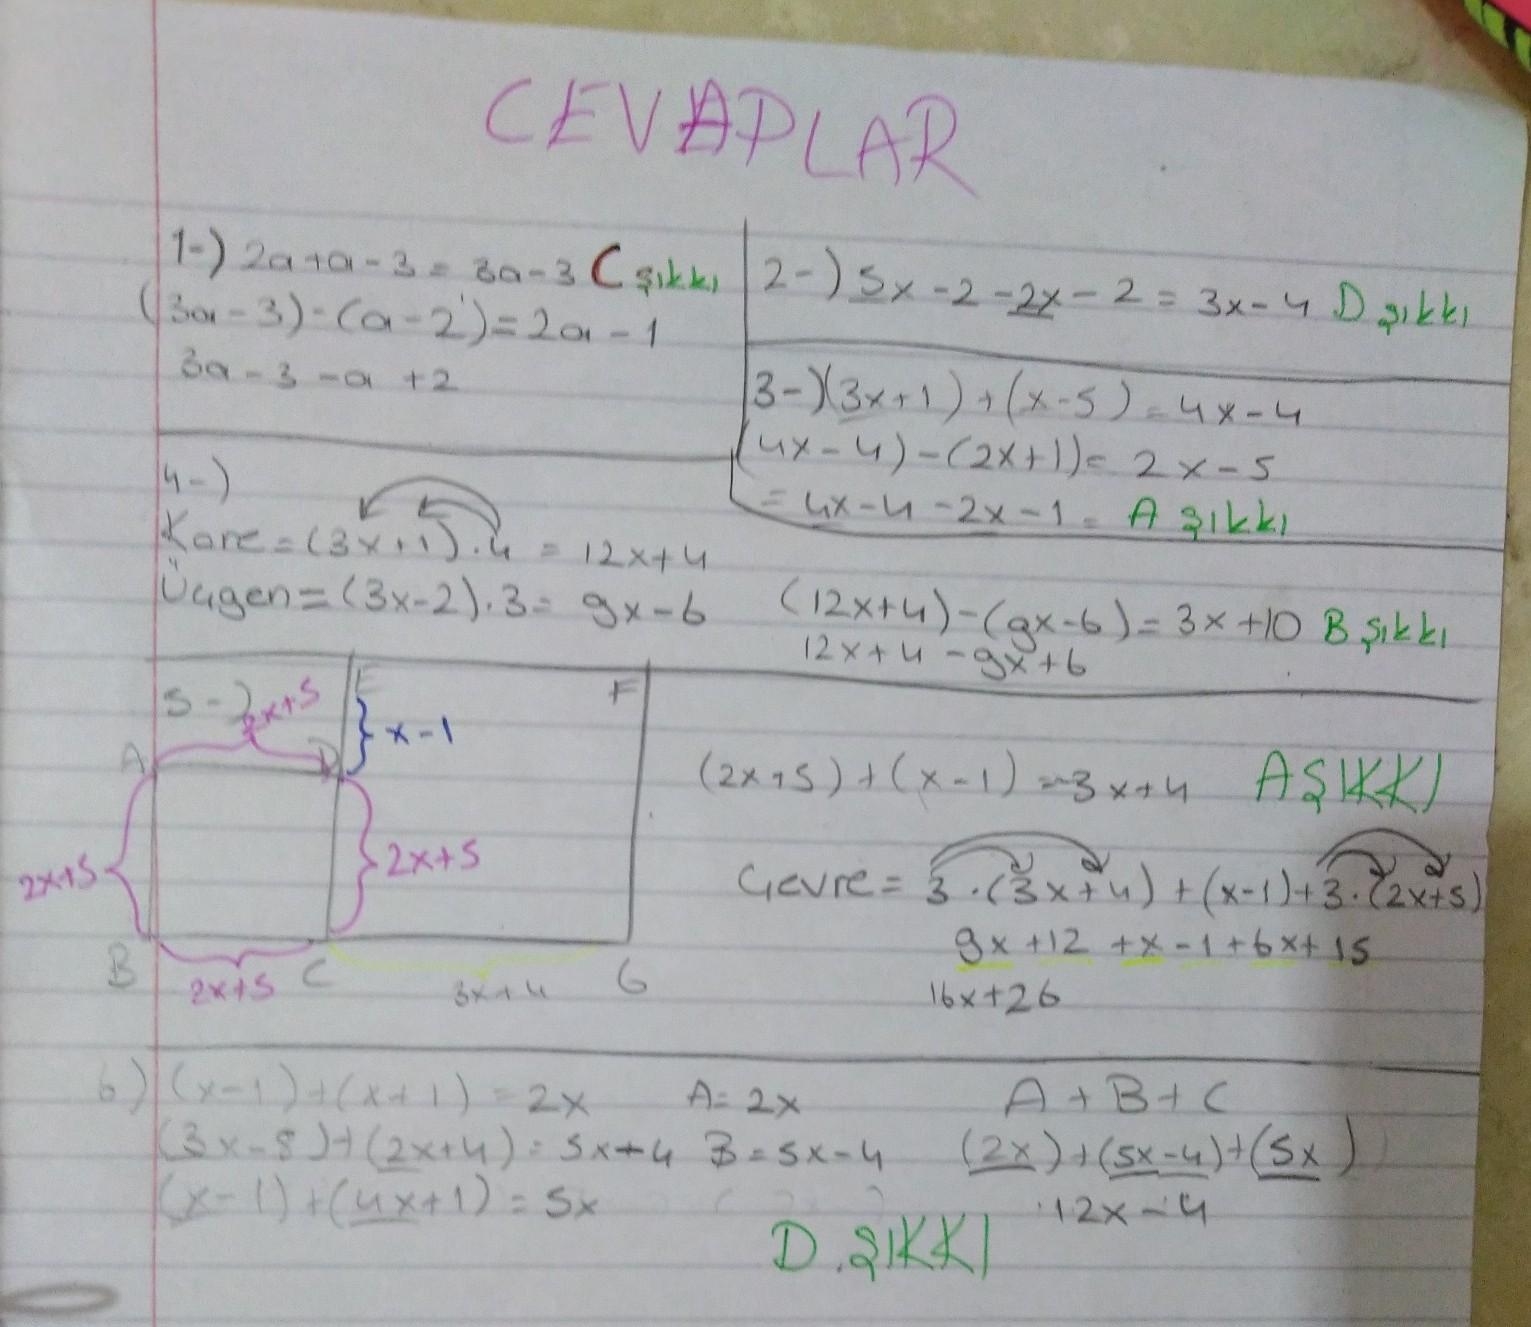 CEVAPLAR
1-) 2a+a-3 = 3a-3 C şıkkı
(3a-3)-(a-2)=2a-1
3a-3-a+2
2-) 5x-2-2x-2 = 3x-4 D şıkkı
3-)(3x+1)+(x-5)=4x-4
(4x-4)-(2x+1)= 2x-5
=4x-4-2x-1= A şıkkı
4-)
Kare=(3x+1).4 = 12x+4
Üçgen=(3x-2).3= 9x-6
(12x+4)-(9x-6)= 3x+10 B şıkkı
12x+4-9x+6
5-)
2x+5
E
F
x-1
A
D
2x+5
2x+5
B
2x+5
C
3x+4
G
(2x+5)+(x-1)=3x+4 A ŞIKKI
Çevre= 3.(3x+4)+(x-1)+3.(2x+5)
9x+12+x-1+6x+15
16x+26
6) (x-1)+(x+1)=2x A=2x A+B+C
(3x-8)+(2x+4)=5x-4 B=5x-4 (2x)+(5x-4)+(5x)
(x-1)+(4x+1)=5x 12x-4
D. ŞIKKI